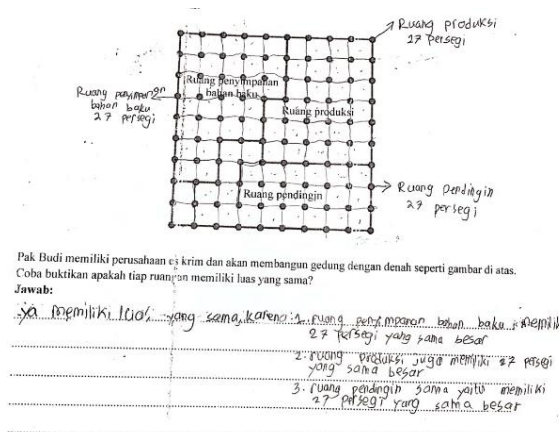 Ruang produksi
27 persegi
Ruang penyimpanan
bahan baku
Ruang penyimpanan
bahan baku
27 persegi
Ruang produksi
Ruang pendingin
Ruang Pendingin
27 persegi
Pak Budi memiliki perusahaan es krim dan akan membangun gedung dengan denah seperti gambar di atas.
Coba buktikan apakah tiap ruangan memiliki luas yang sama?
Jawab:
ya memiliki luas yang sama, karena: 1. ruang penyimpanan bahan baku memilik
27 persegi yang sama besar
2. ruang produksi juga memiliki 27 persegi
yang sama besar
3. ruang pendingin sama yaitu memiliki
27 persegi yang sama besar